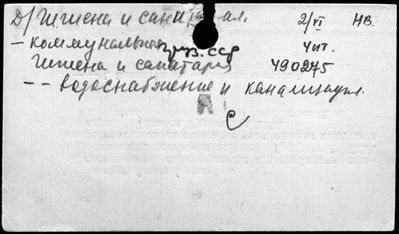 Д/ Гигиена и санитария. 2/VI НВ.
– коммунальная Узб. ССР Чит.
гигиена и санитария 490275
– – водоснабжение и канализация.
С